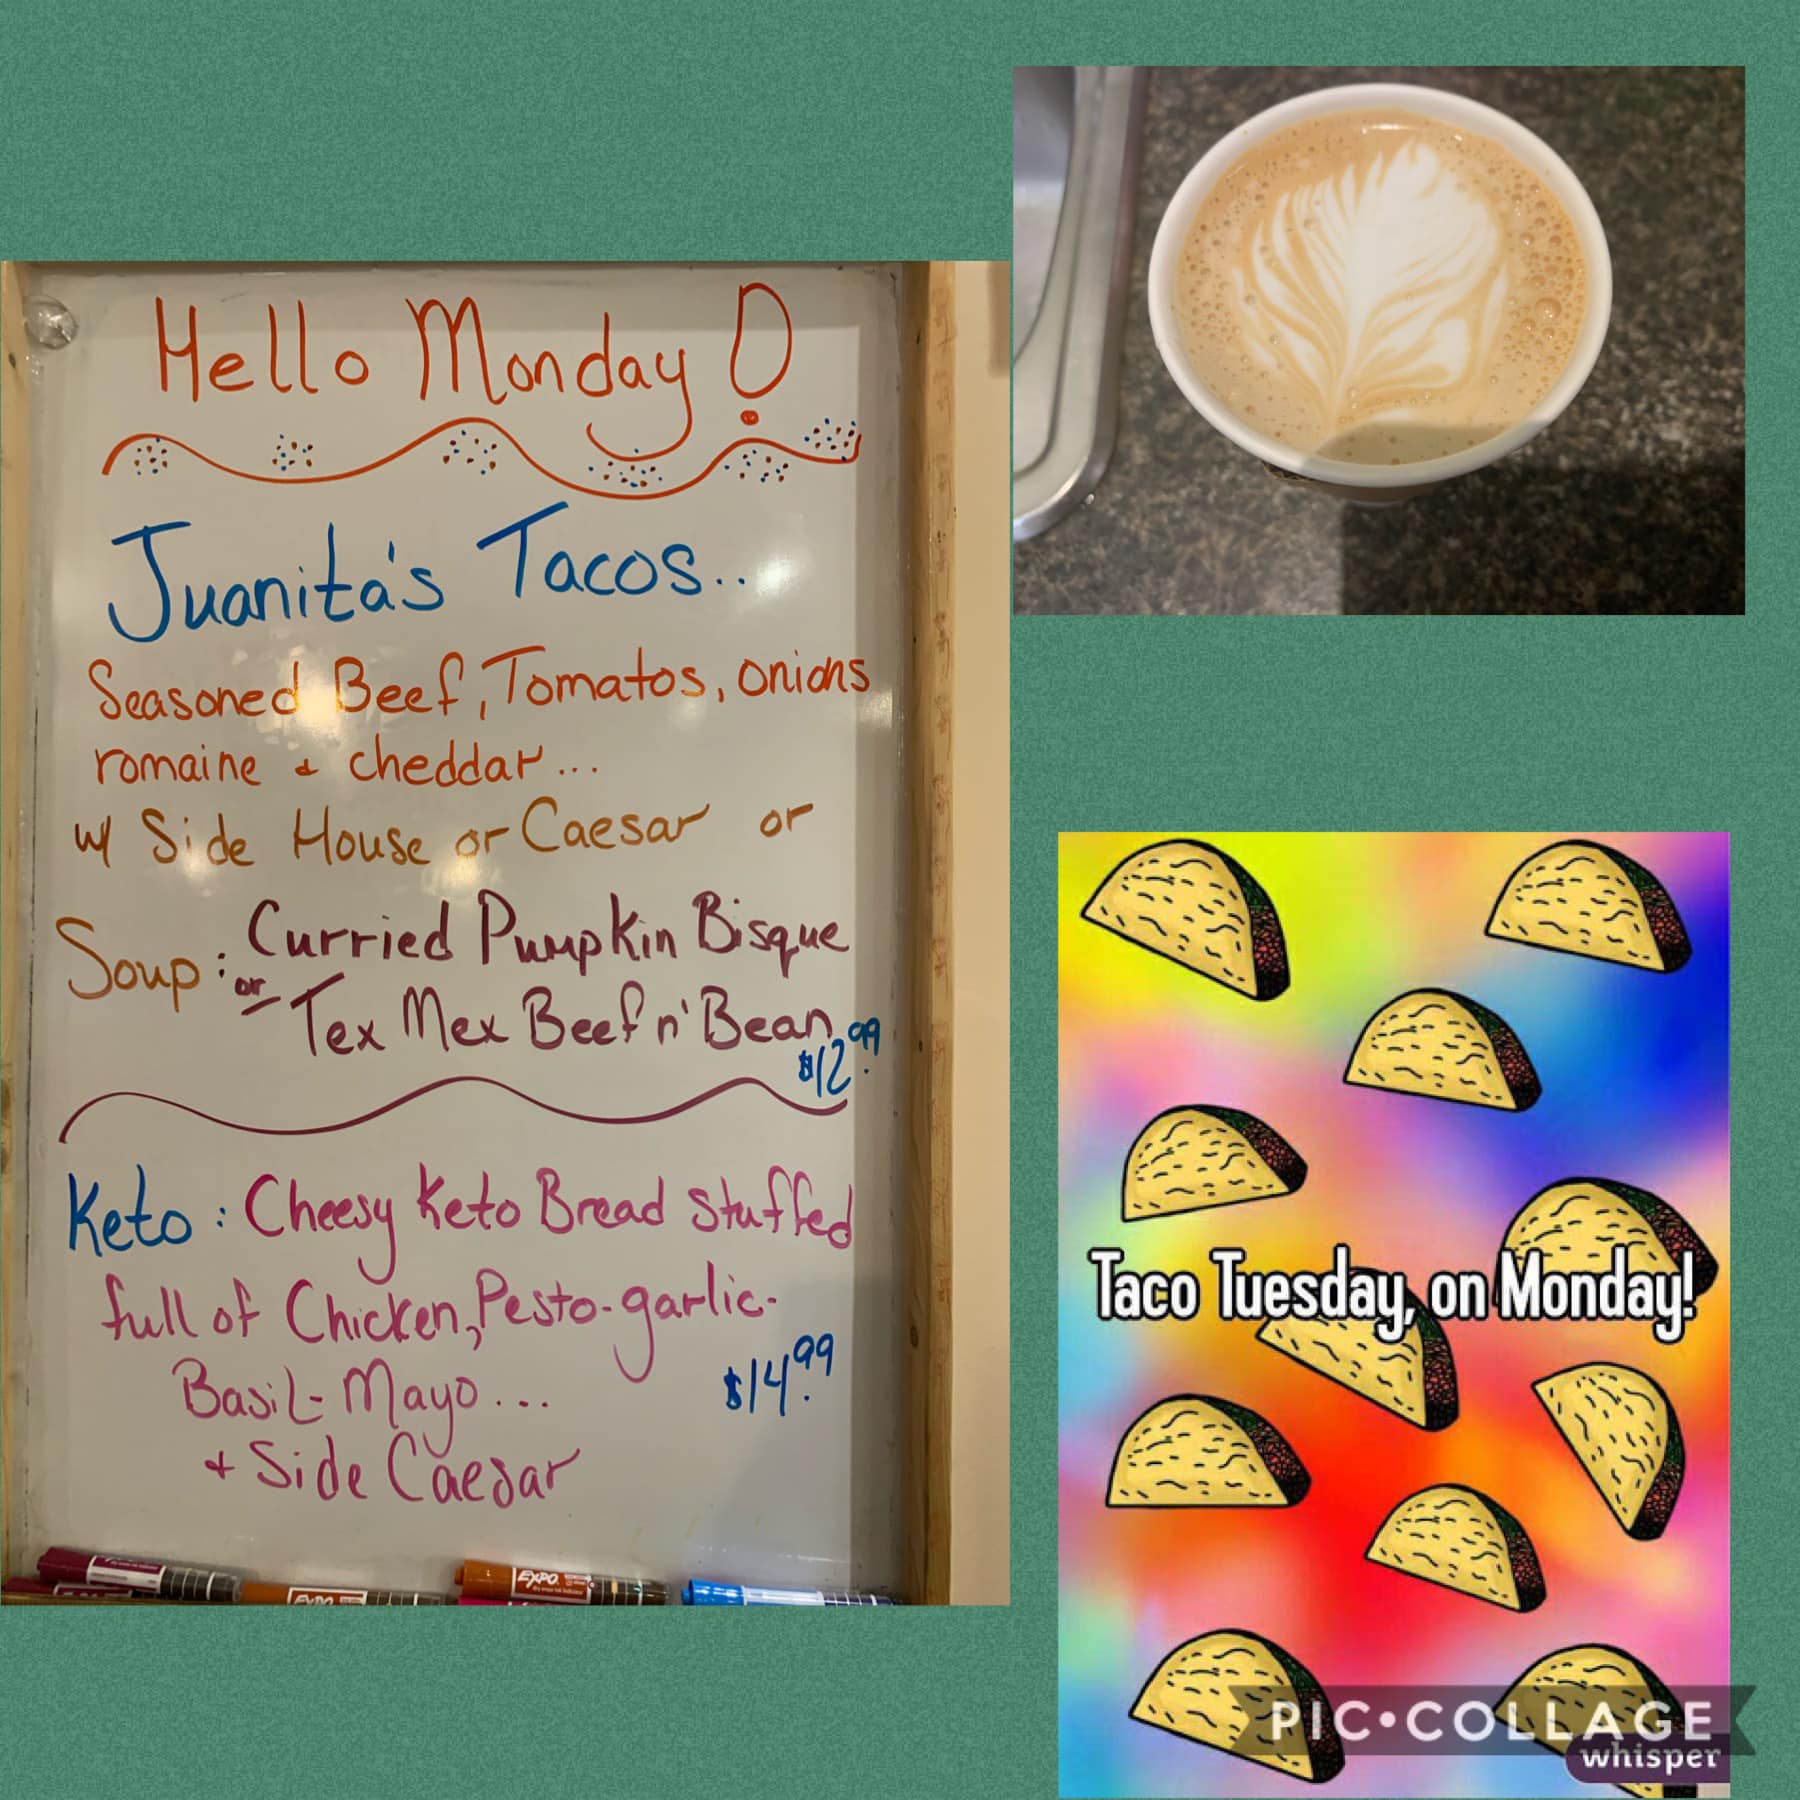 Hello Monday!
Juanita's Tacos..
Seasoned Beef, Tomatos, onions
romaine + cheddar...
w/ Side House or Caesar or
Soup: Curried Pumpkin Bisque
or Tex Mex Beef n' Bean
$12.99
Keto: Cheesy Keto Bread stuffed
full of Chicken, Pesto-garlic-
Basil-Mayo...
$14.99
+ Side Caesar
EXPO
EXPO
Taco Tuesday, on Monday!
PIC•COLLAGE
whisper